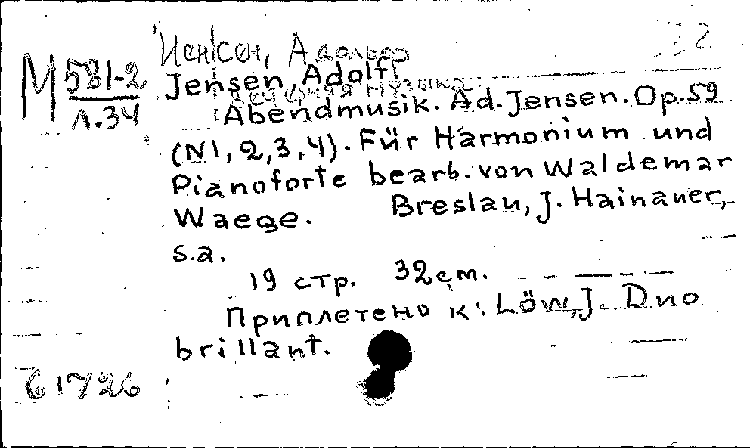 Йенсен, Адольф 32
М 581-2
л.34
Jensen, Adolf
Музыка
Abendmusik. Ad. Jensen. Op. 59
(N1, 2, 3, 4). Für Harmonium und
Pianoforte bearb. von Waldemar
Waege. Breslau, J. Hainauer,
s.a.
19 стр. 32 cm.
Приплетено к: Löw, J. Duo
brillant.
61726